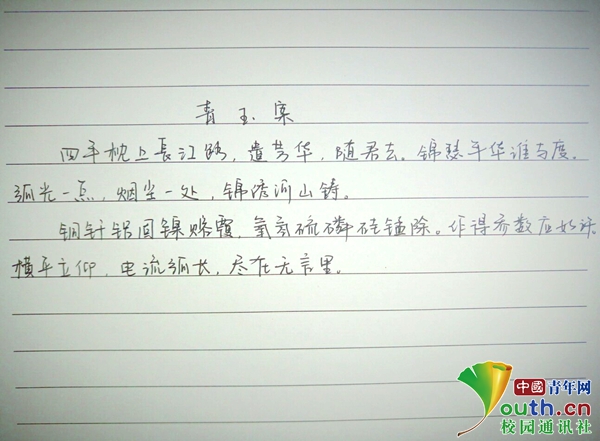 青玉案
四年枕上長江路，遗芳华，随君去。锦瑟年华谁与度，
弧光一点，烟尘一处，锦绣河山铸。
铜钎铝固镍熔覆，氧氢硫磷硅锰除。乍得参数应如诉
横平立仰，电流弧长，尽在无言里。
中國青年网
youth.cn
校园通讯社